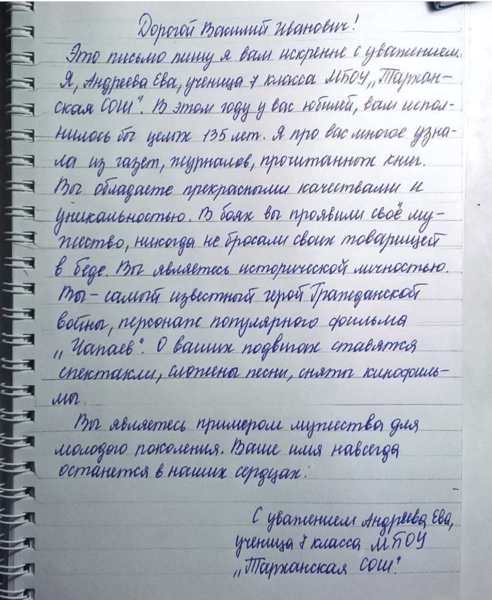 Дорогой Василий Иванович!
Это письмо пишу я вам искренне с уважением.
Я, Андреева Ева, ученица 7 класса МБОУ „Тархан-
ская СОШ". В этом году у вас юбилей, вам испол-
нилось бы целых 135 лет. Я про вас многое узна-
ла из газет, журналов, прочитанных книг.
Вы обладаете прекрасными качествами и
уникальностью. В боях вы проявили своё му-
жество, никогда не бросали своих товарищей
в беде. Вы являетесь исторической личностью.
Вы - самый известный герой Гражданской
войны, персонаж популярного фильма
„Чапаев". О ваших подвигах ставятся
спектакли, сложены песни, сняты кинофиль-
мы.
Вы являетесь примером мужества для
молодого поколения. Ваше имя навсегда
останется в наших сердцах.
С уважением Андреева Ева,
ученица 7 класса МБОУ
„Тарханская СОШ".